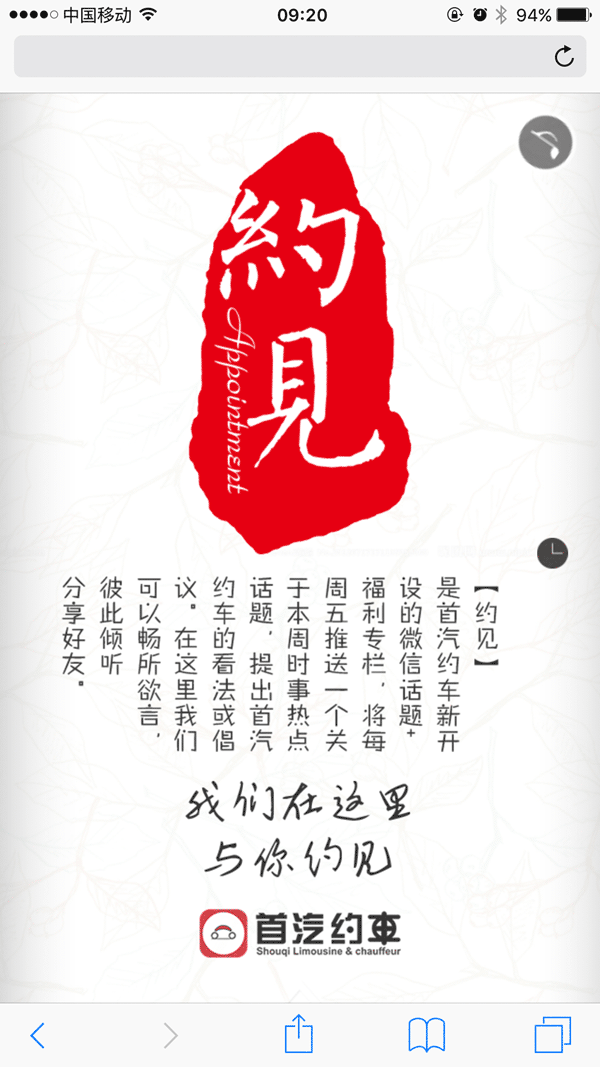 中国移动
09:20
94%
約見
Appointment
【约见】
是首汽约车新开
设的微信话题+
福利专栏，将每
周五推送一个关
于本周时事热点
话题，提出首汽
约车的看法或倡
议。在这里我们
可以畅所欲言，
彼此倾听
分享好友。
我们在这里
与你约见
首汽约車
Shouqi Limousine & chauffeur